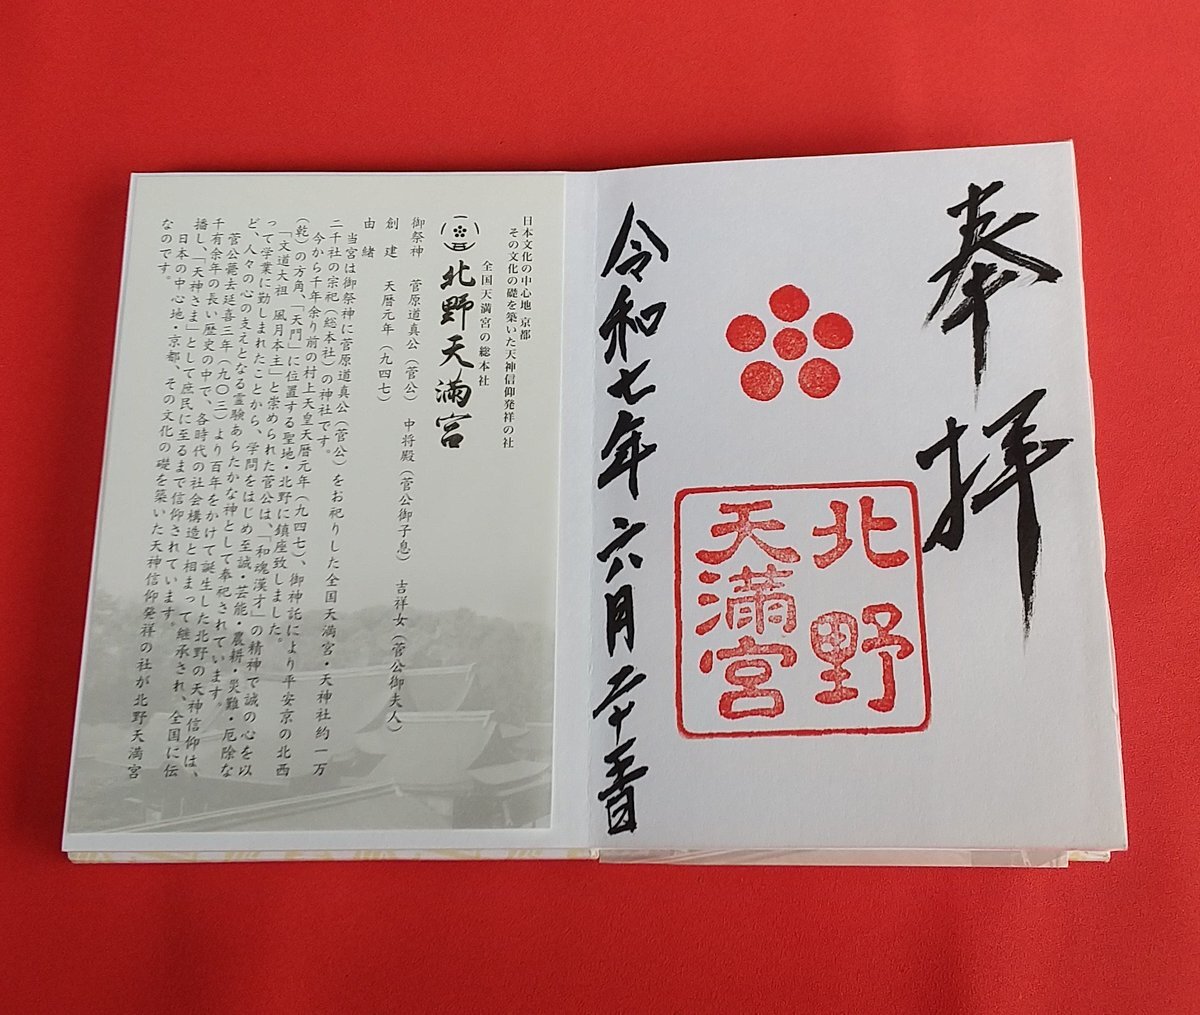 奉拝
北野
天満宮
令和七年六月二十五日
日本文化の中心地 京都
その文化の礎を築いた天神信仰発祥の社
全国天満宮の総本社
北野天満宮
御祭神 菅原道真公(菅公) 中将殿(菅公御子息) 吉祥女(菅公御夫人)
創建 天暦元年(九四七)
由緒
当宮は御祭神に菅原道真公(菅公)をお祀りした全国天満宮・天神社約一万
二千社の宗祀(総本社)の神社です。
今から千年余り前の村上天皇天暦元年(九四七)、御神託により平安京の北西
(乾)の方角、「天門」に位置する聖地・北野に鎮座致しました。
「文道大祖 風月本主」と崇められた菅公は、「和魂漢才」の精神で誠の心を以
って学業に勤しまれたことから、学問をはじめ至誠・芸能・農耕・災難・厄除な
ど、人々の心の支えとなる霊験あらたかな神として奉祀されています。
菅公薨去延喜三年(九〇三)より百年をかけて誕生した北野の天神信仰は、
千有余年の長い歴史の中で、各時代の社会構造と相まって継承され、全国に伝
播し、「天神さま」として庶民に至るまで信仰されています。
日本の中心地・京都、その文化の礎を築いた天神信仰発祥の社が北野天満宮
なのです。